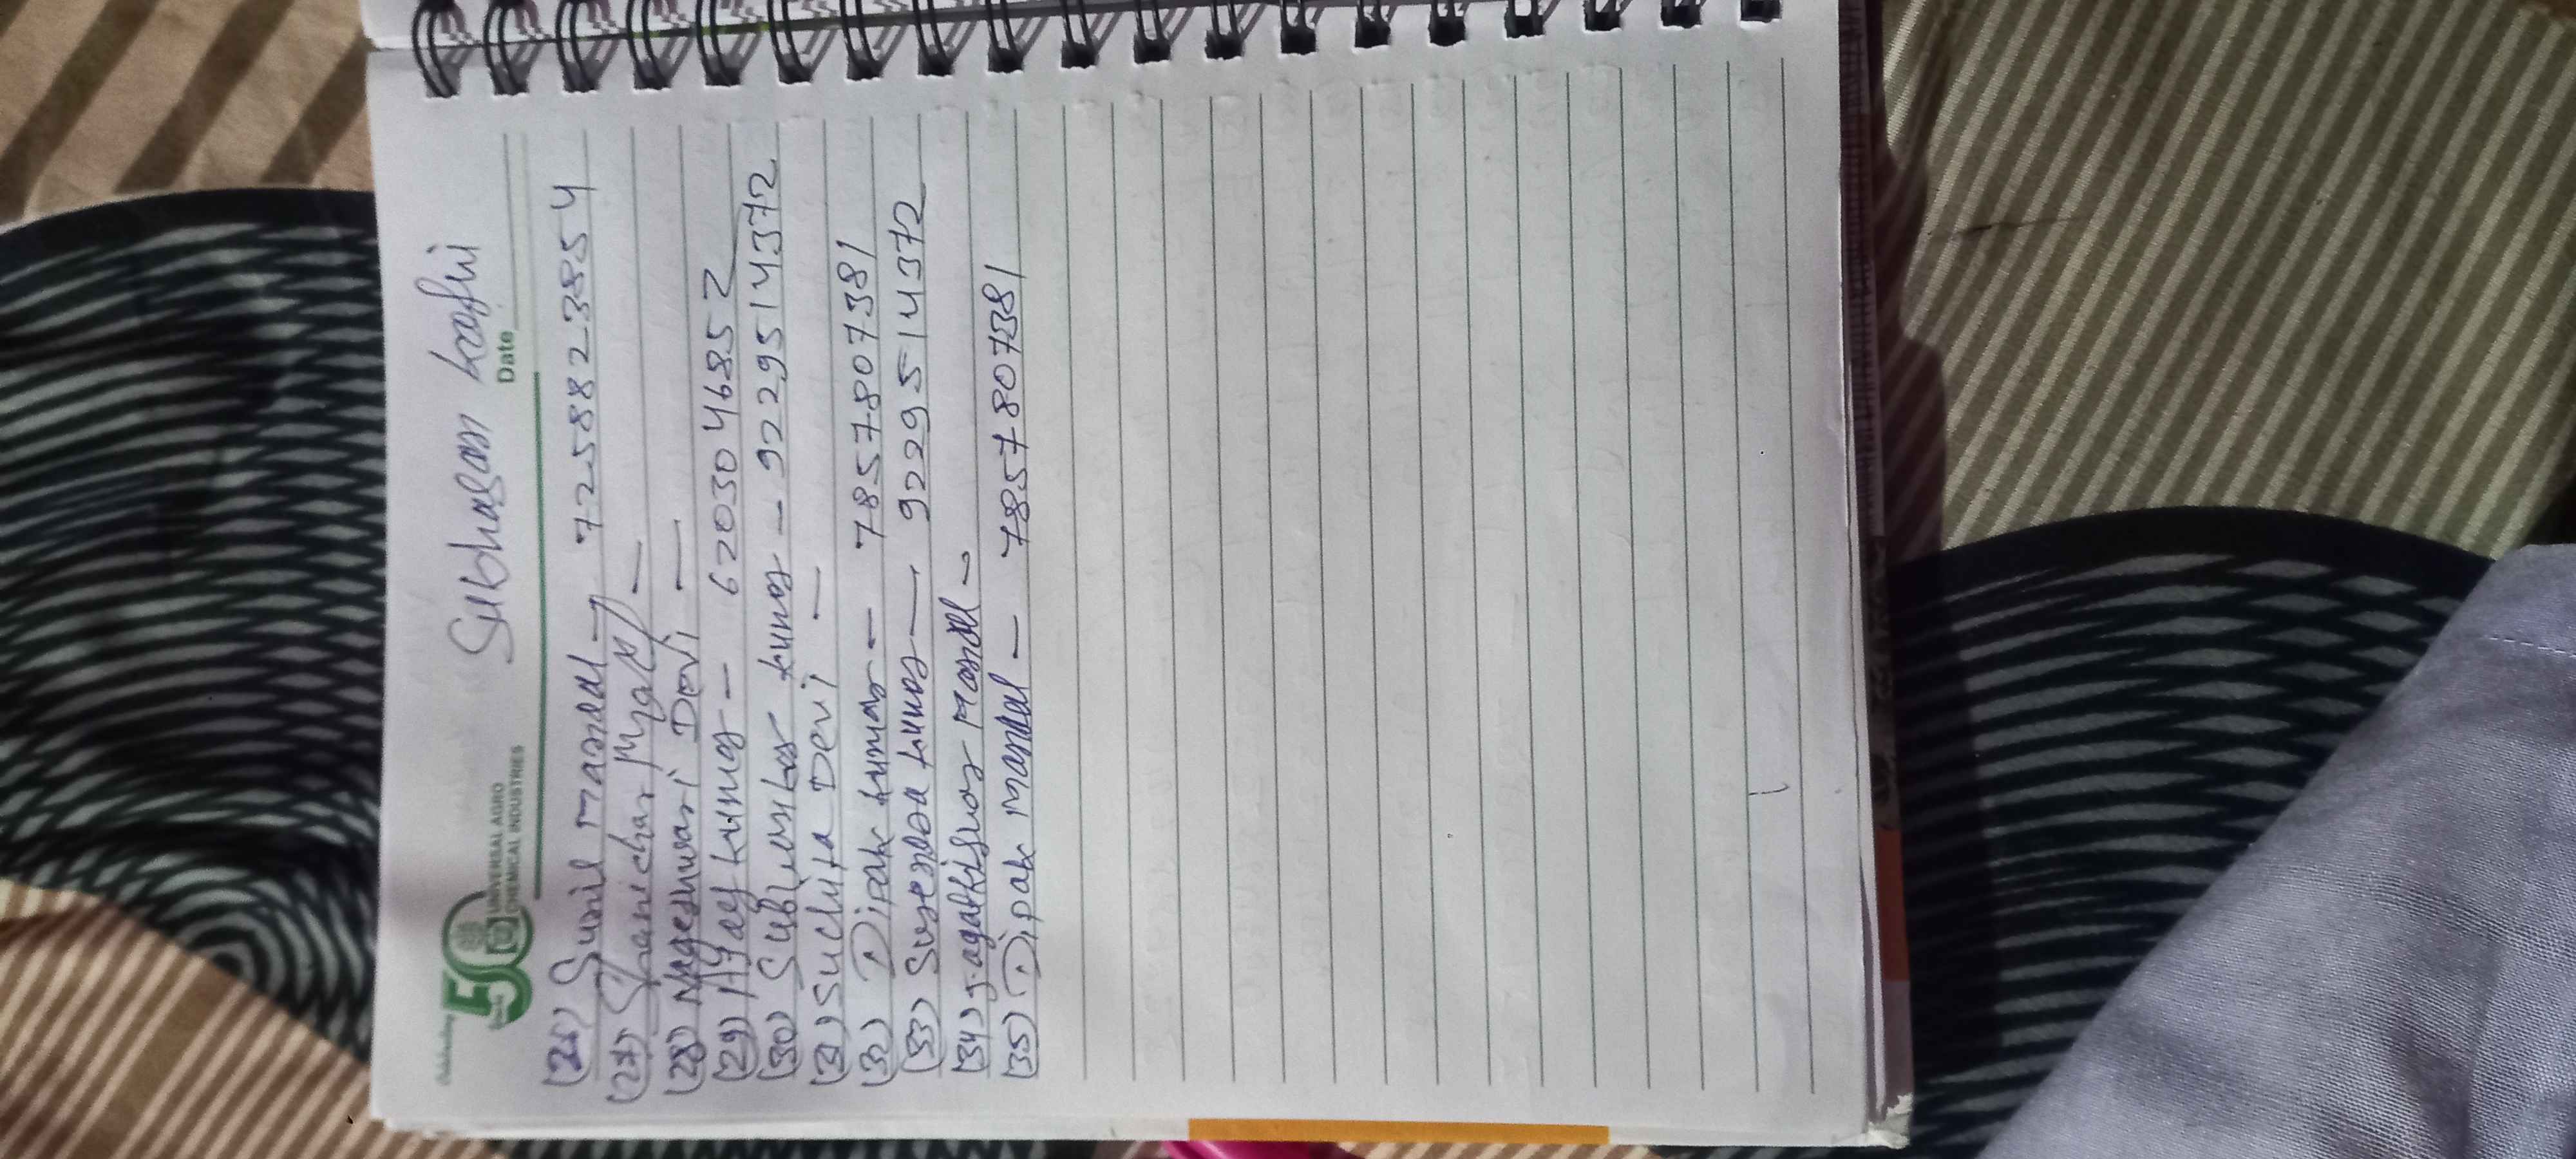 Celebrating
50
UNIVERSAL AGRO
CHEMICAL INDUSTRIES
Subhasan
Date
(26) Sunil Mandal — 7258823854
(27) Shanichar —
(28) Nageshwari Devi —
(29) Ajay kumar — 6203046852
(30) kumar — 9229514372
(31) Suchita Devi —
(32) Dipak kumar — 7857807381
(33) Surendra kumar — 9229514372
(34) Mandal -
(35) Dipak Mandal — 7857807381